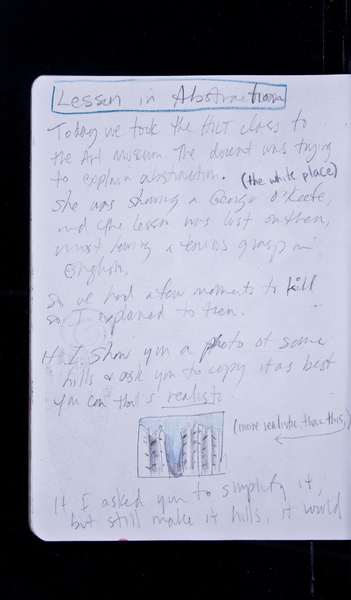 Lesson in Abstraction
Today we took the HILT class to
the Art Museum. The docent was trying
to explain abstraction. (the white place)
She was showing a Georgia O'Keefe,
and the lesson was lost on them,
most having a tenuous grasp in
English.
So we had a few moments to kill
so I explained to them.
If I show you a photo of some
hills & ask you to copy it as best
you can that's realistic
(more realistic than this)
If I asked you to simplify it,
but still make it hills, it would